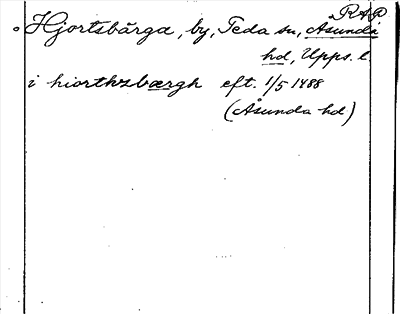 RAP.
Hjortsbärga, by, Teda sn, Åsunda
hd, Upps. l.
i hiorthzbærgh eft. 1/5 1488
(Åsunda hd)